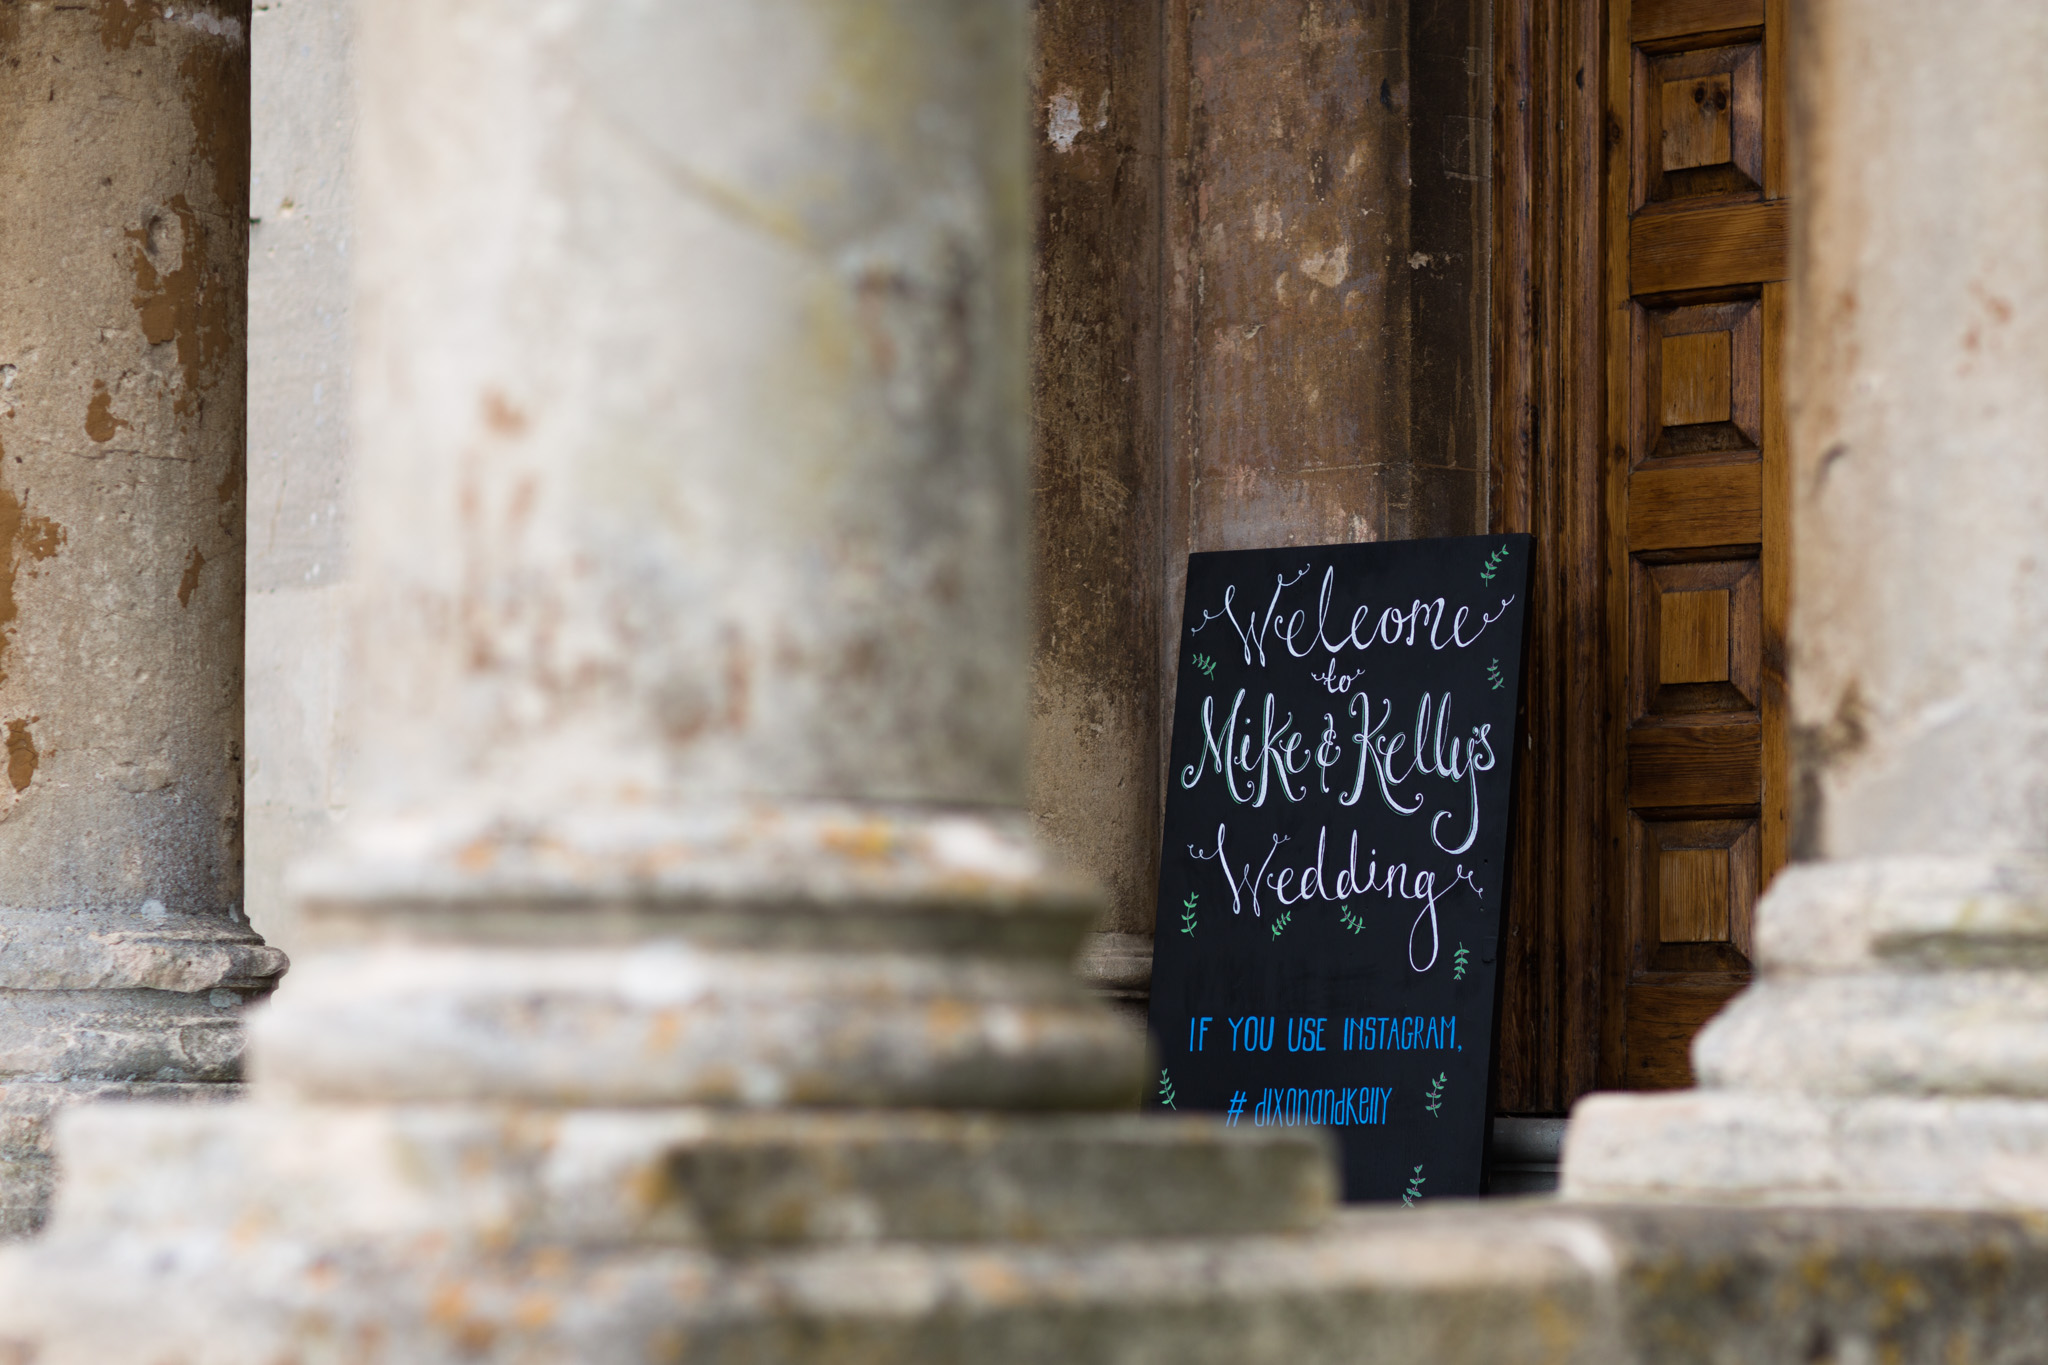 Welcome
to
Mike & Kelly's
Wedding
IF YOU USE INSTAGRAM,
# dixonandkelly